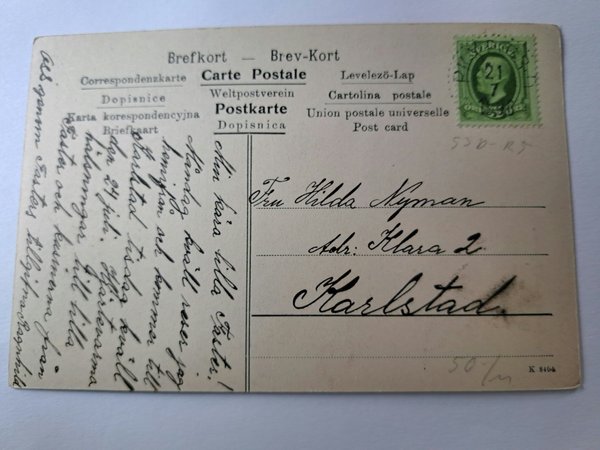 Brefkort — Brev-Kort
Correspondenzkarte Carte Postale Levelező-Lap
Dopisnice Weltpostverein Cartolina postale
Karta korespondencyjna Postkarte Union postale universelle
Briefkaart Dopisnica Post card
SVERIGE
21
7
Fru Hilda Nyman
Adr: Klara 2
Karlstad.
K 8464
50-/
Min kära lilla Faster!
Måndag kväll reser jag
hemifrån och kommer till
Karlstad tisdag kväll
den 24 juli. Hjärtevarma
hälsningar till lilla
Faster och kusinerna från
Fasters tillgifna Ragnhild